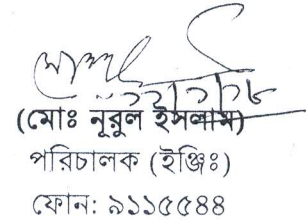 (মোঃ নূরুল ইসলাম)
পরিচালক (ইঞ্জিঃ)
ফোন: ৯১১৫৫৪৪